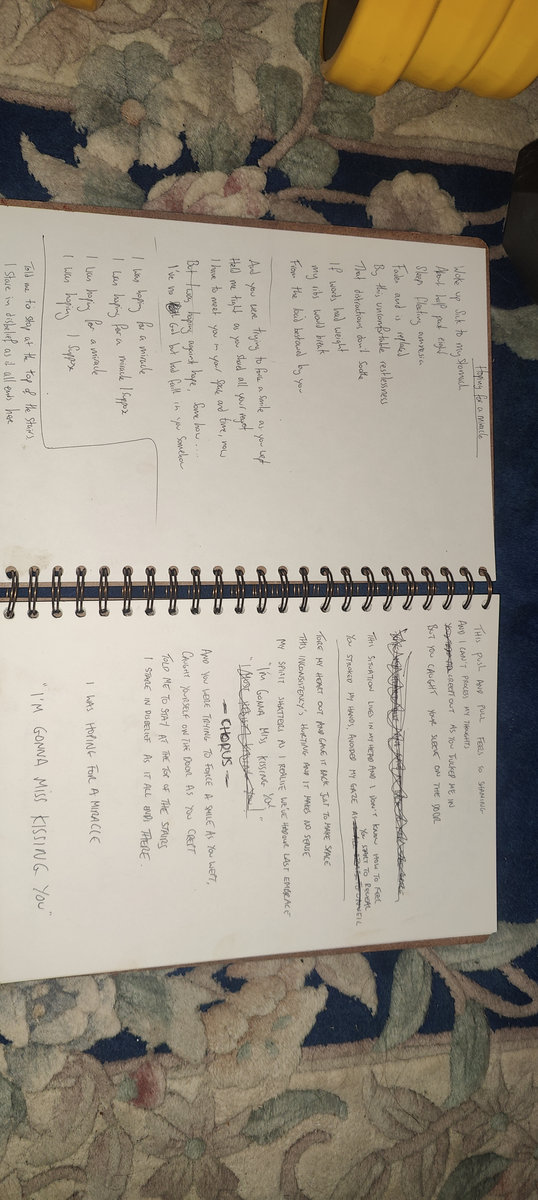 Hoping for a miracle
Woke up sick to my stomach
About half past eight
Sleep fleeting amnesia
Fades and is replaced
By this uncomfortable restlessness
That distractions don't soothe
If words had weight
my ribs would break
From the hail bestowed by you
And you seen trying to force a smile as you wept
Held me tight as you shared all your regret
I have to meet you in your space and time, now
But I was hoping against hope, somehow....
I've no God but had faith in you somehow
I was hoping for a miracle
I was hoping for a miracle I suppose
I was hoping for a miracle
I was hoping I suppose
Told me to stop at the top of the stairs
I stare in disbelief as it all ends here
THIS PUSH AND PULL FEELS SO
AND I CAN'T PROCESS MY THOUGHTS
CREPT OUT AS YOU TUCKED ME IN
BUT YOU CAUGHT YOUR SLEEVE ON THE DOOR
THIS SITUATION LIVES IN MY HEAD AND I DON'T KNOW HOW TO FEEL
YOU STROKED MY HANDS, AVOIDED MY GAZE AS YOU START TO REVEAL
TORE MY HEART OUT AND GAVE IT BACK JUST TO MAKE SPACE
THIS INCONSISTENCY'S HURTING AND IT MAKES NO SENSE
MY SPIRIT SHATTERS AS I REALISE WE'VE HAD OUR LAST EMBRACE
"I'M GONNA MISS KISSING YOU"
- CHORUS -
AND YOU WERE TRYING TO FORCE A SMILE AS YOU WEPT,
CAUGHT YOURSELF ON THE DOOR AS YOU CREPT
TOLD ME TO STAY AT THE TOP OF THE STAIRS
I STARE IN DISBELIEF AS IT ALL ENDS THERE.
I WAS HOPING FOR A MIRACLE
"I'M GONNA MISS KISSING YOU"